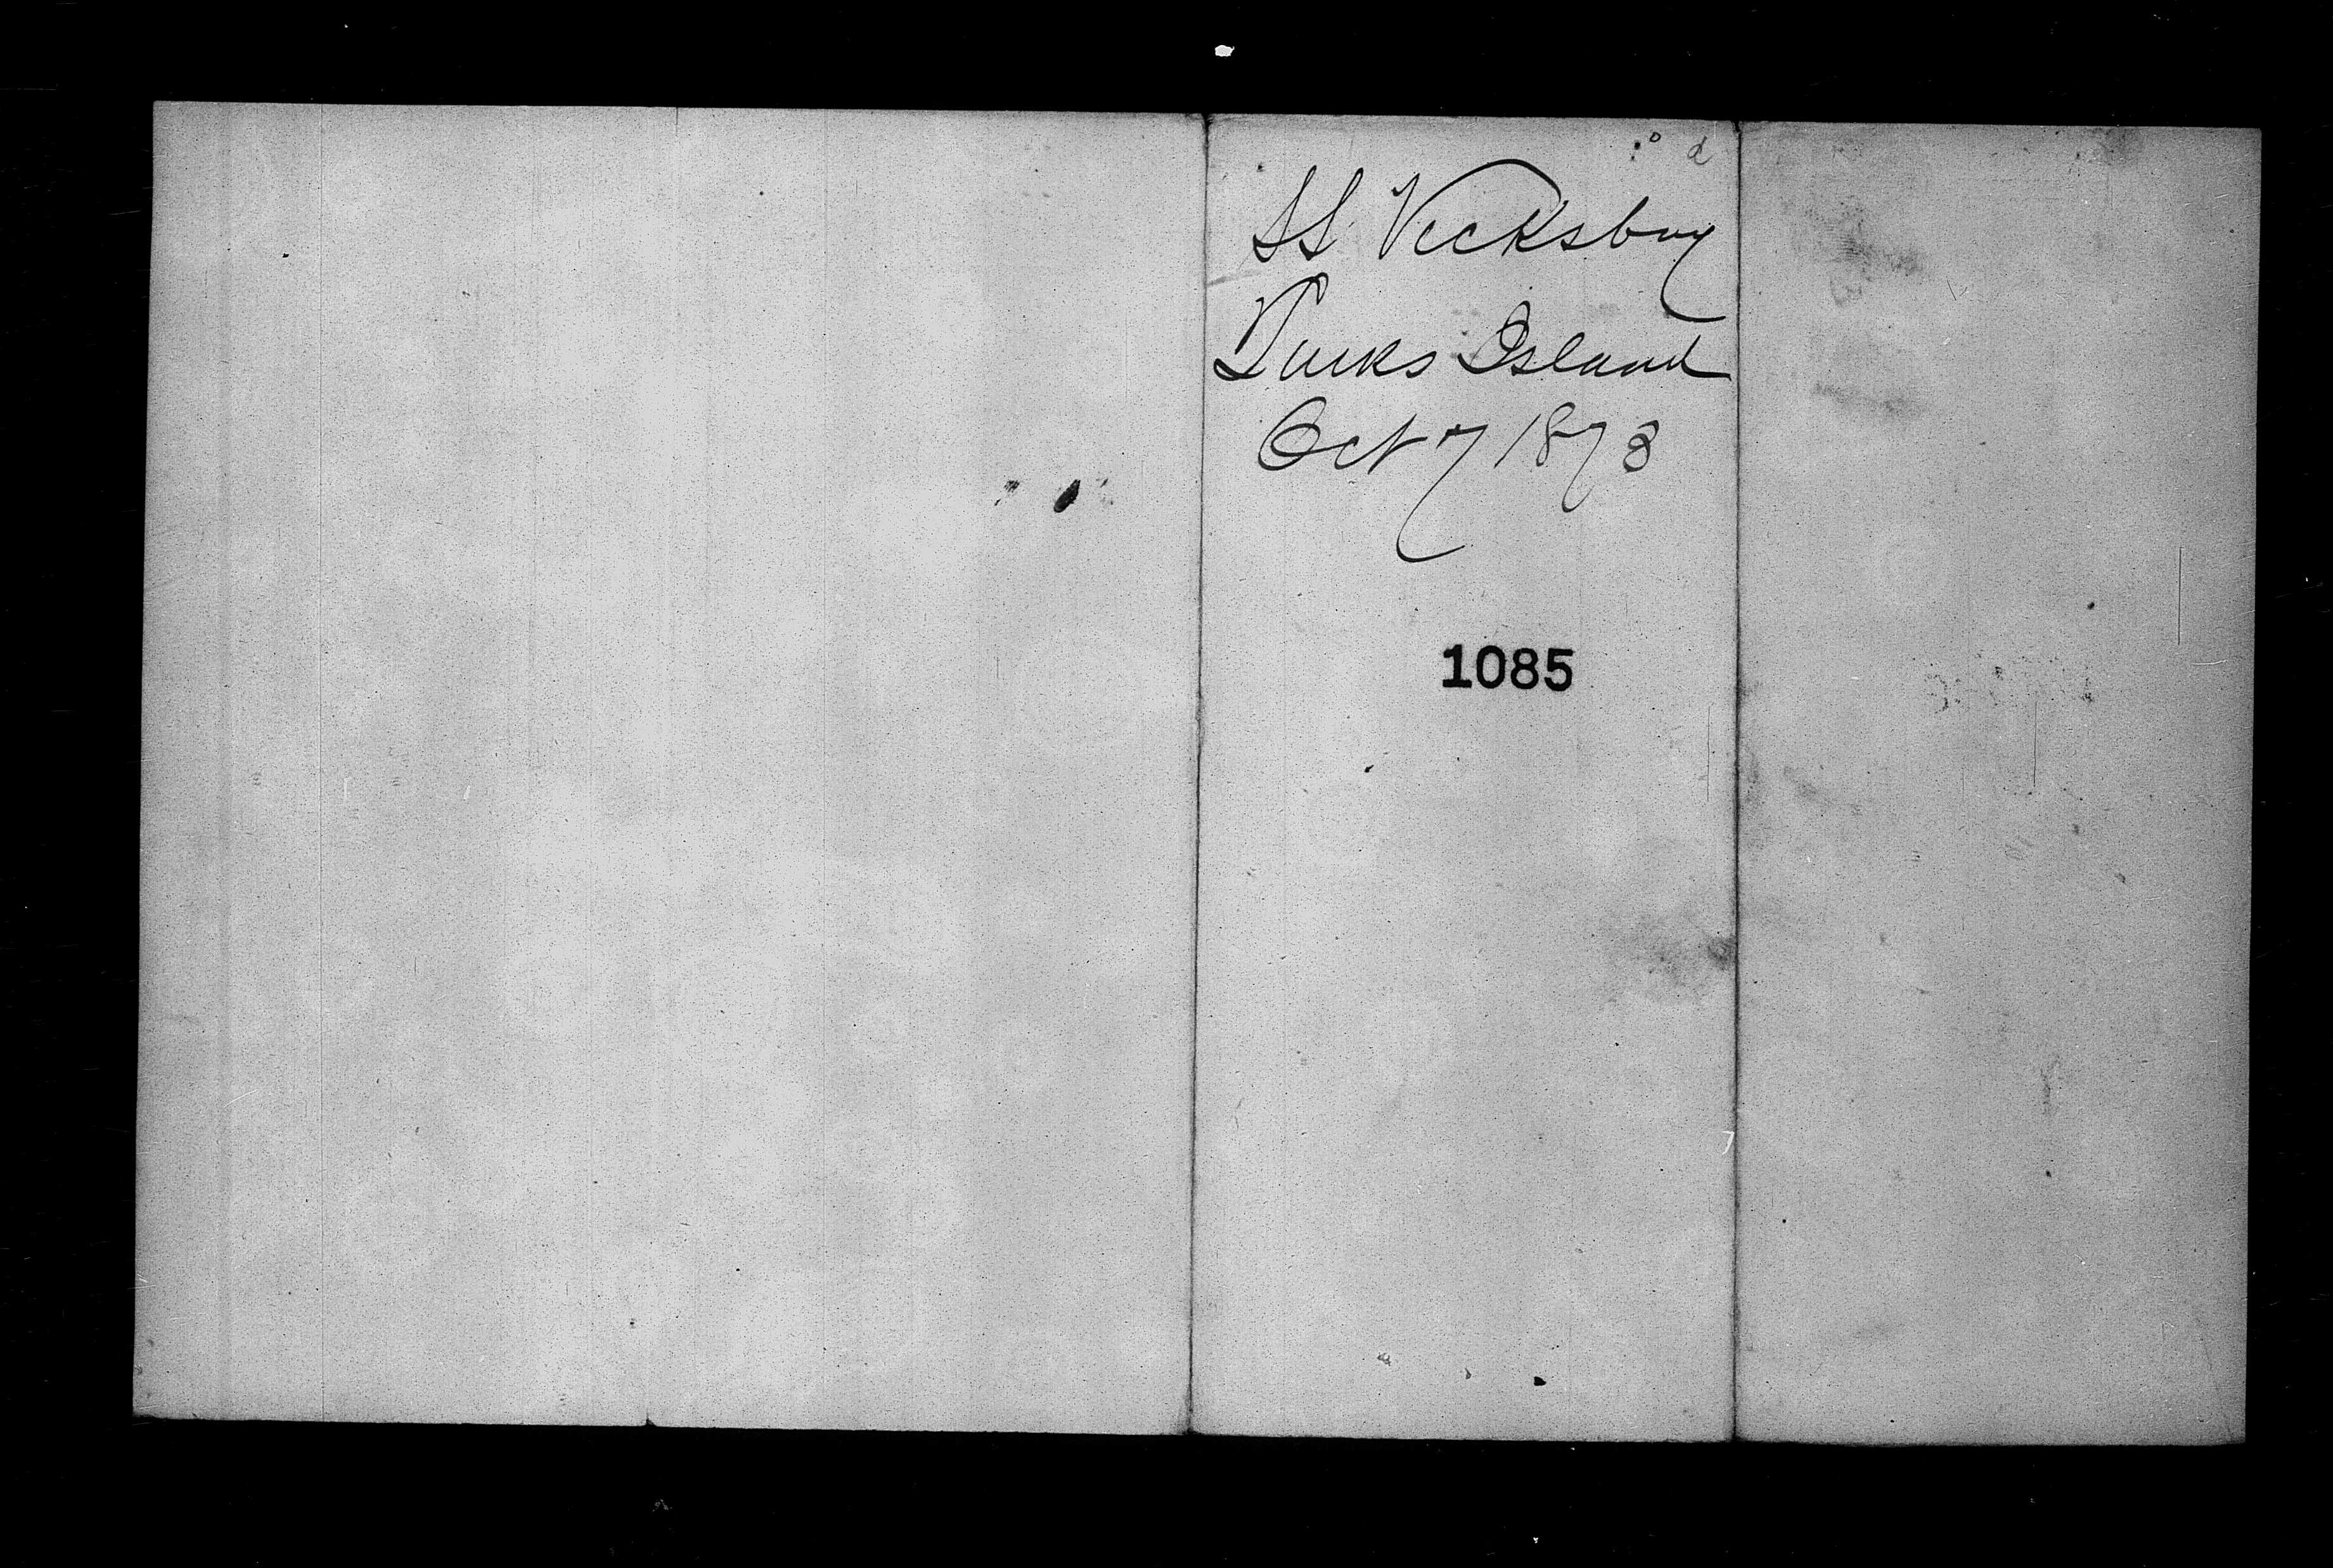 SS Vicksburg
Turks Island
Oct 7 1873
1085